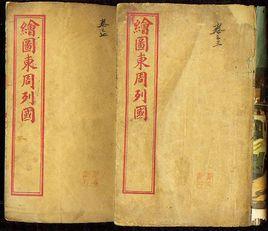 繪圖東周列國
繪圖東周列國
卷之三